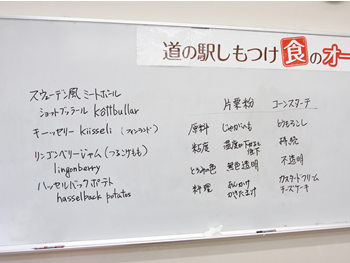 道の駅しもつけ食のオー
スウェーデン風ミートボール
ショットブッラール köttbullar
キーッセリー kiisseli (フィンランド)
リンゴンベリージャム(つるこけもも)
lingonberry
ハッセルバックポテト
hasselback potatos
片栗粉 コーンスターチ
原料 じゃがいも とうもろこし
粘度 温度が下がると低下 持続
とろみの色 無色透明 不透明
料理 あんかけ かきたま汁 カスタードクリーム チーズケーキ